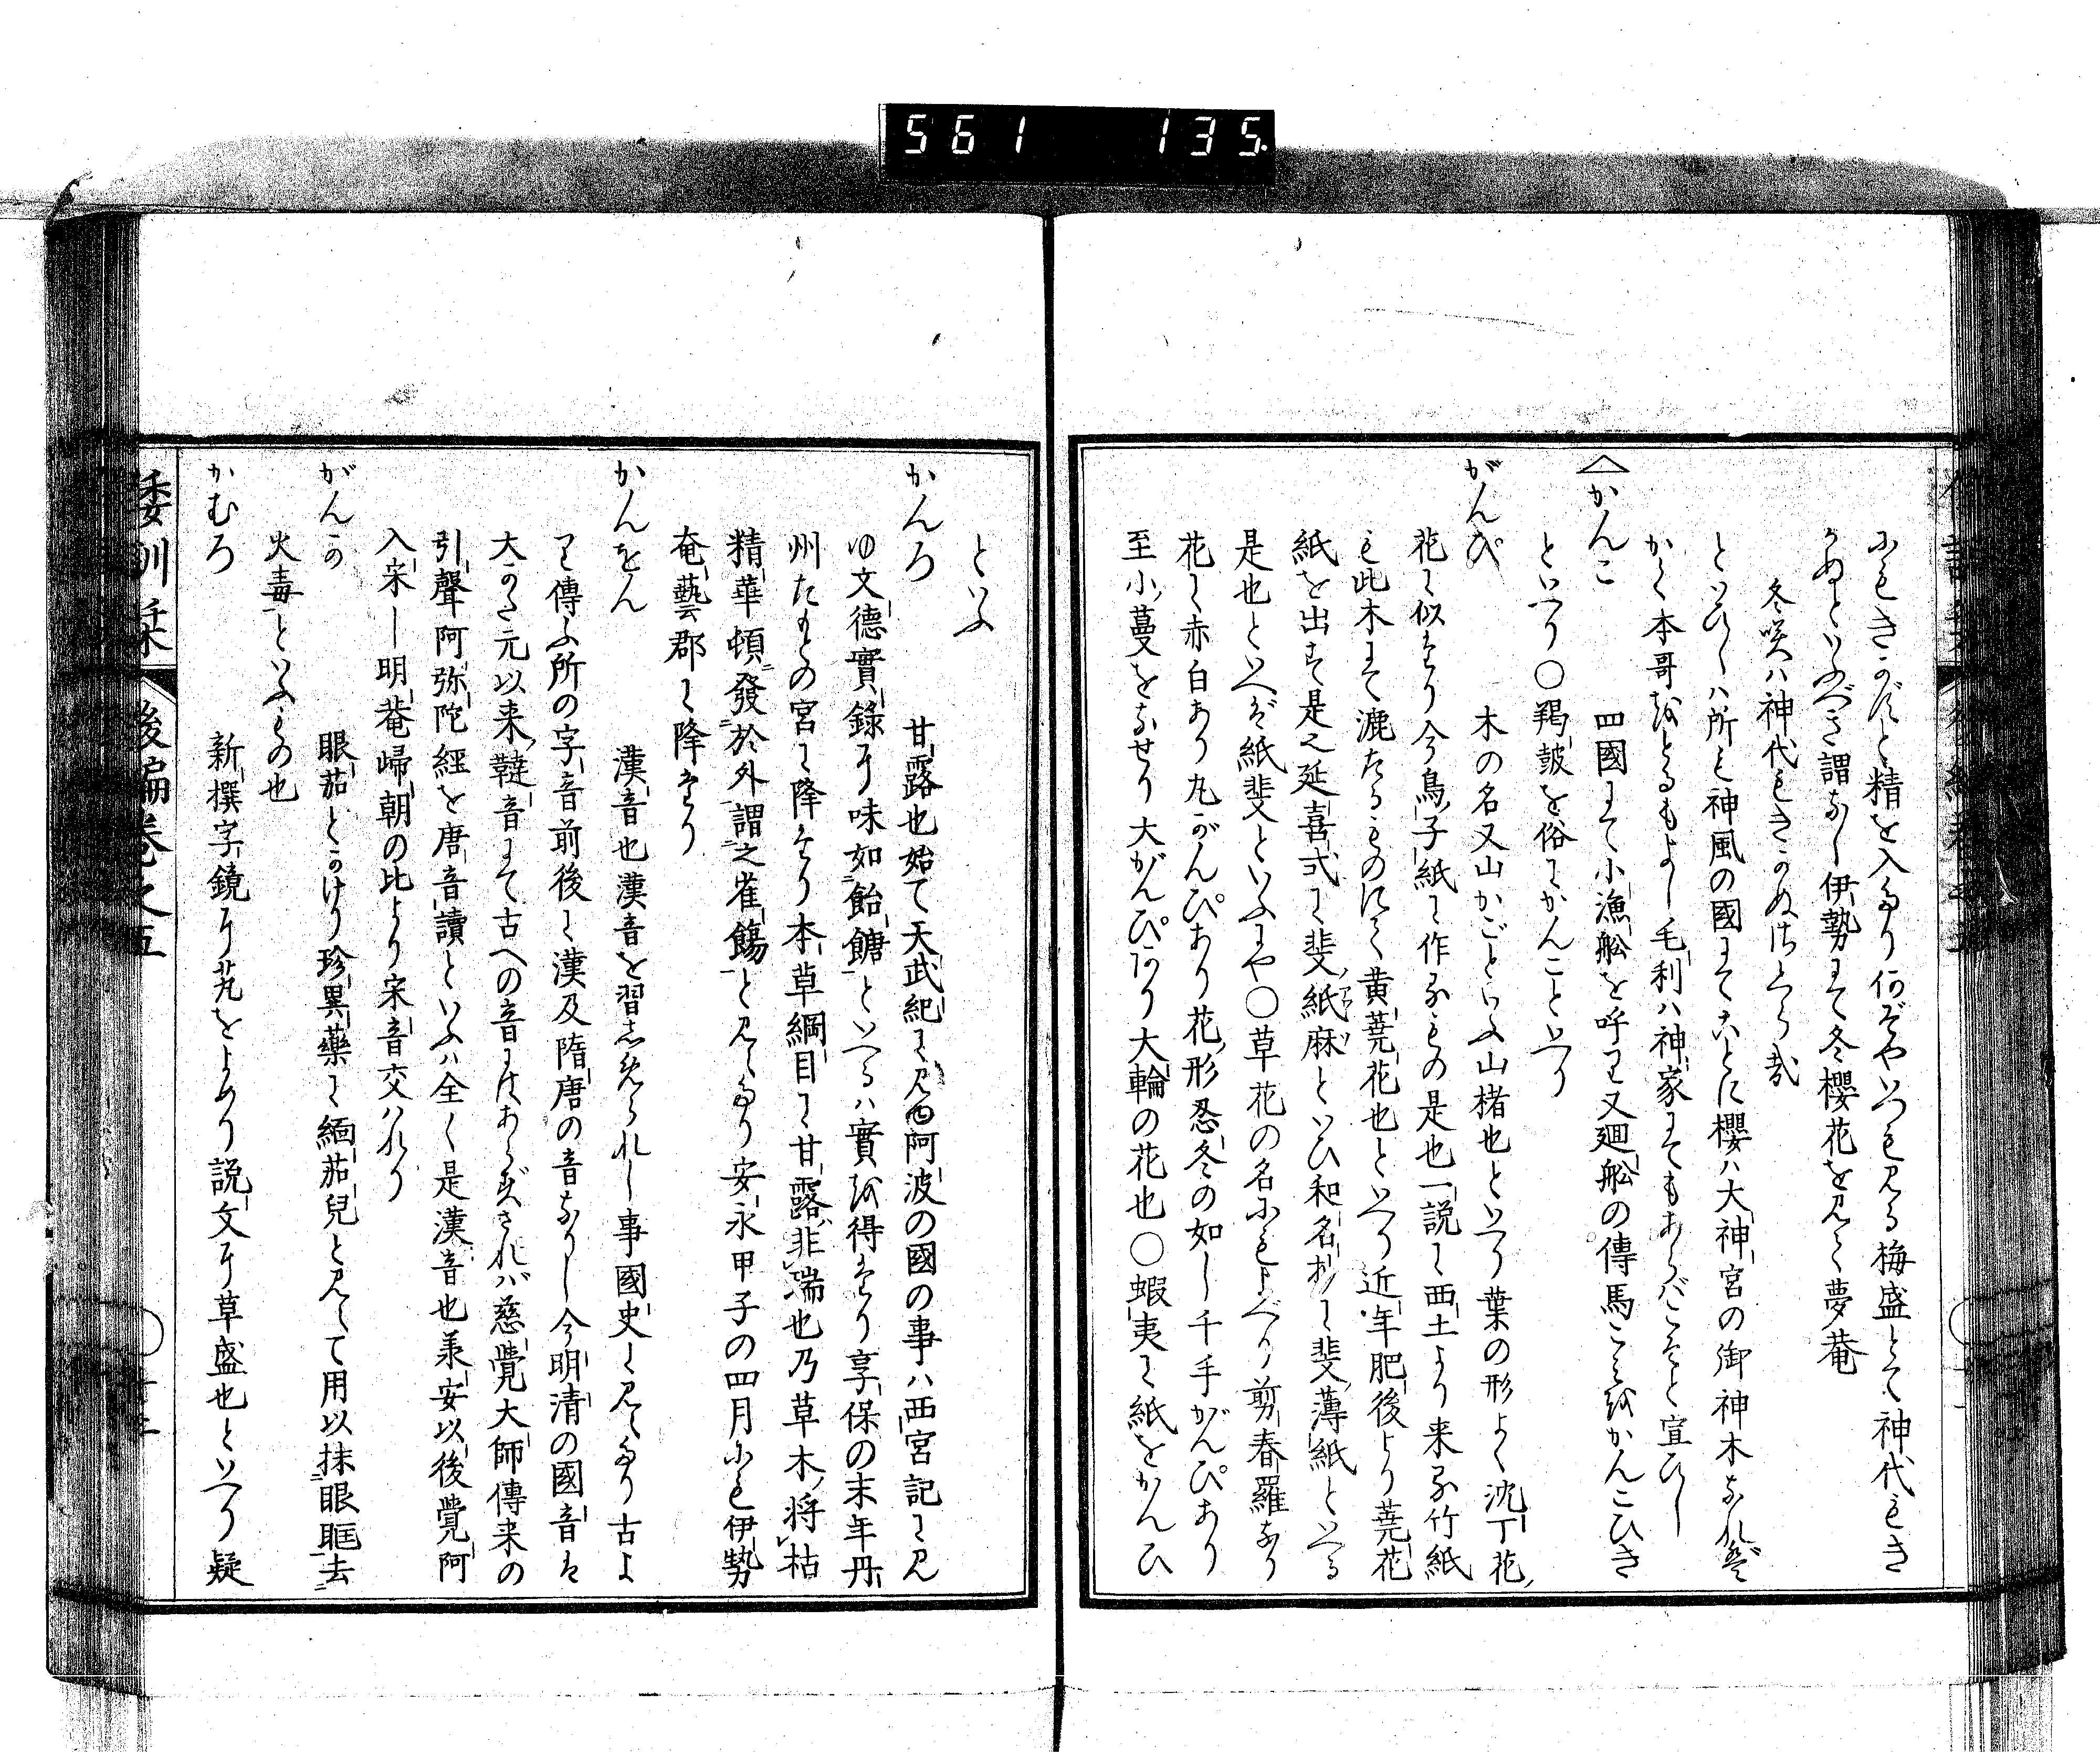 561 135
にもきかだと精を入たり何ぞやいつも見る梅盛とて神代もき
かぬといふべき謂なし伊勢にて冬櫻花を見て夢菴
冬咲ハ神代もきかぬはさくら哉
といひしハ所も神風の國にてことに櫻ハ大神宮の御神木なれバ
かく本哥をとるもよし毛利ハ神家にてもあらバこそと宣ひし
かんこ 四國にて小漁船を呼り又廻船の傳馬こみをかんこひき
といへり〇羯鼓を俗にかんこといへり
がんぴ 木の名又山かごといふ山楮也といへり葉の形よく沈丁花
花に似たり今鳥子紙に作るもの是也一説に西土より来る竹紙
も此木にて漉たるものにて黄蕘花也といへり近年肥後より蕘花
紙を出すも是也延喜式に斐紙麻といひ和名抄に斐薄紙といへる
是也といへバ紙斐といふにや〇草花の名にもよべり剪春羅なり
花に赤白あり丸がんぴあり花形忍冬の如し千手がんぴあり
至小蔓をなせり大がんぴあり大輪の花也〇蝦夷に紙をかんひ
といふ
かんろ 甘露也始て天武紀に見ゆ阿波の國の事ハ西宮記に見
ゆ文德實錄に味如飴餹といへるハ實を得たり享保の末年丹
州たもとの宮に降たり本草綱目に甘露非瑞也乃草木將枯
精華頓發於外謂之雀餳と見えたり安永甲子の四月にも伊勢
奄藝郡に降たり
かんをん 漢音也漢音を習しめられし事國史に見えたり古よ
り傳ふ所の字音前後に漢及隋唐の音なりし今明清の國音は
大かた元以来韃音にて古への音にはあらずされバ慈覺大師傳来の
引聲阿弥陀經を唐音讀といふハ全く是漢音也承安以後覺阿
入宋し明菴歸朝の比より宋音交ハれり
がんか 眼茄とかけり珍異藥に緬茄兒と見えて用以抹眼眶去
火毒といふもの也
かむろ 新撰字鏡に艽をよめり説文に草盛也といへり疑
倭訓栞 後編巻之五